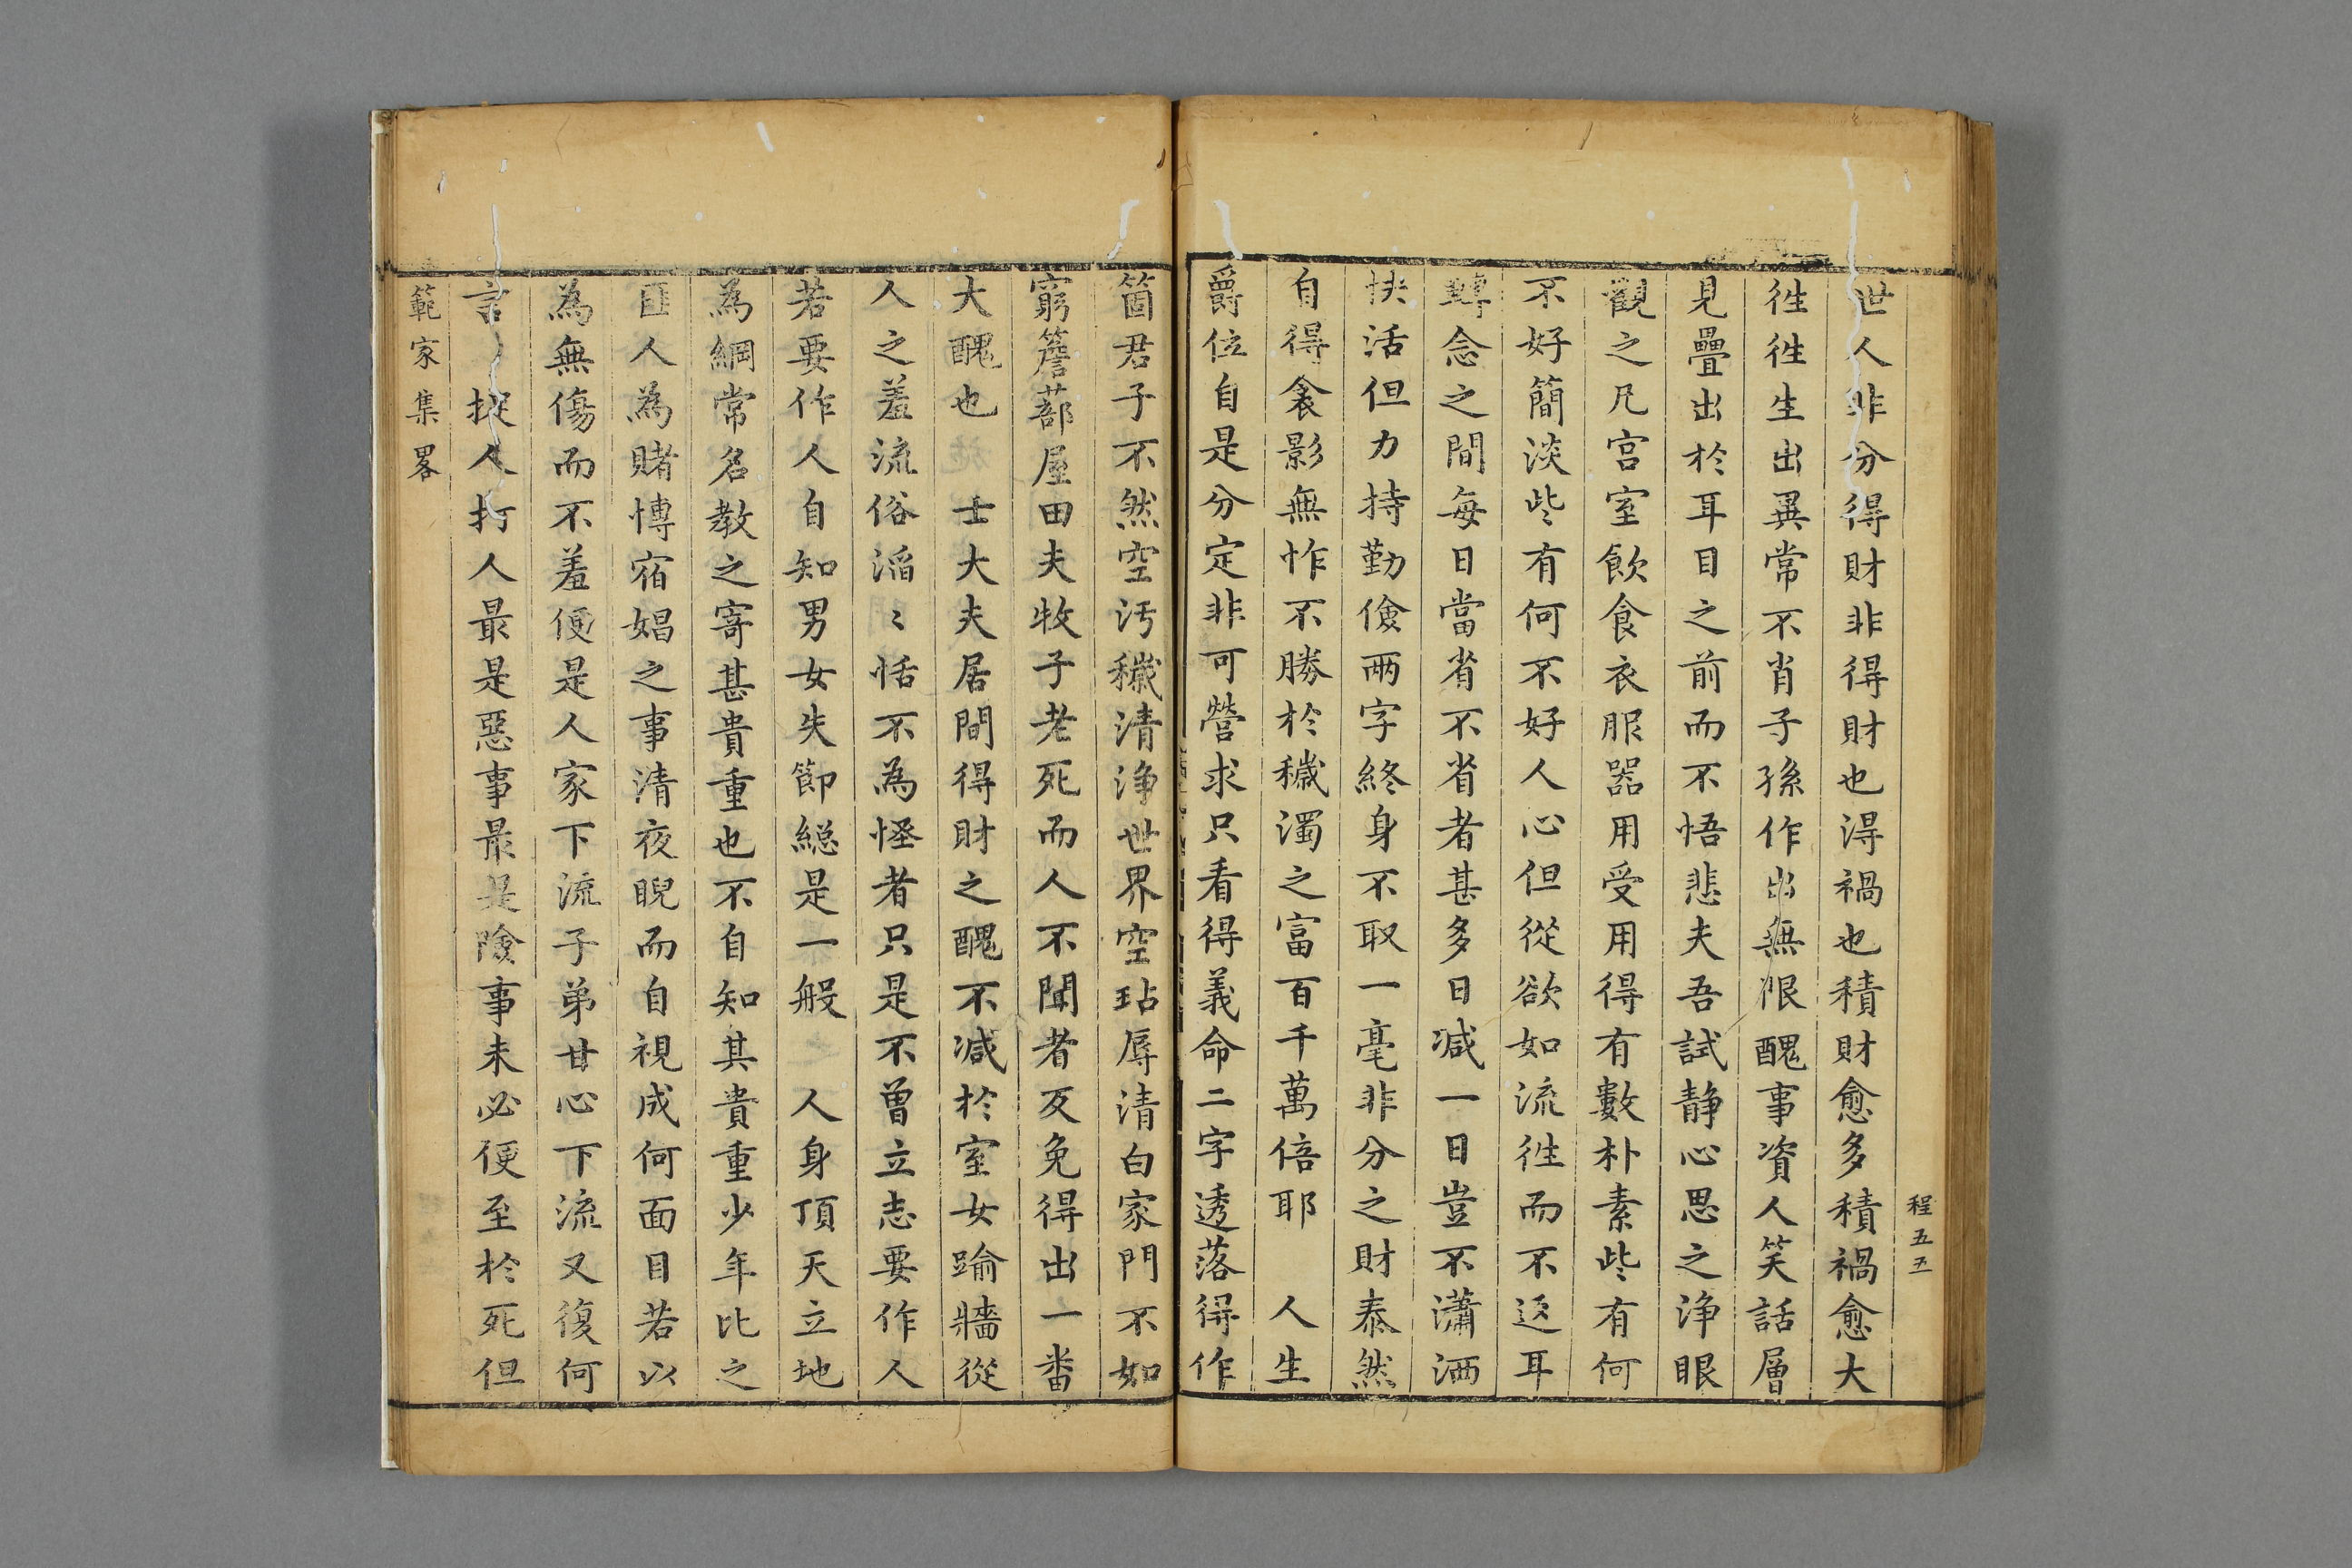 世人非分得財非得財也淂禍也積財愈多積禍愈大
徃徃生出異常不肖子孫作出無限醜事資人笑話層
見疊出於耳目之前而不悟悲夫吾試静心思之浄眼
觀之凡宫室飲食衣服器用受用得有數朴素些有何
不好簡淡些有何不好人心但從欲如流徃而不返耳
轉念之間每日當省不省者甚多日减一日豈不瀟洒
快活但力持勤儉兩字終身不取一毫非分之財泰然
自得衾影無怍不勝於穢濁之富百千萬倍耶　人生
爵位自是分定非可營求只看得義命二字透落得作
箇君子不然空汚穢清浄世界空玷辱清白家門不如
窮簷蔀屋田夫牧子老死而人不聞者反免得出一畨
大醜也　士大夫居間得財之醜不减於室女踰牆從
人之羞流俗滔〻恬不為怪者只是不曾立志要作人
若要作人自知男女失節総是一般　人身頂天立地
為綱常名教之寄甚貴重也不自知其貴重少年比之
匪人為賭博宿娼之事清夜睨而自視成何面目若以
為無傷而不羞便是人家下流子弟甘心下流又復何
言　捉人打人最是惡事最是險事未必便至於死但
範家集畧
程五五